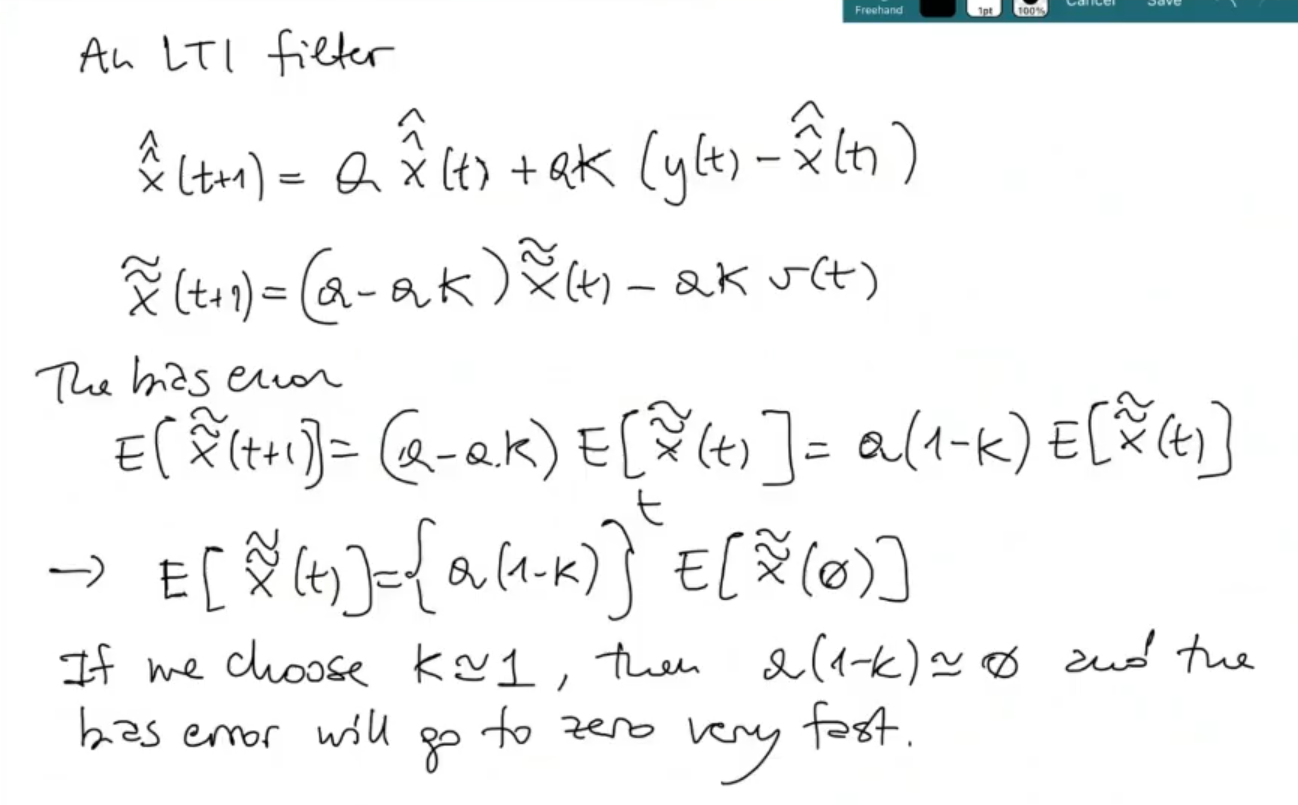 Freehand 1pt 100% Cancel Save
An LTI filter
x̂̂(t+1) = a x̂̂(t) + ak (y(t) - x̂̂(t))
x̃̃(t+1) = (a - ak) x̃̃(t) - ak v(t)
The bias error
E[x̃̃(t+1)] = (a - a.k) E[x̃̃(t)] = a(1-k) E[x̃̃(t)]
→ E[x̃̃(t)] = {a(1-k)}^t E[x̃̃(∅)]
If we choose k ≃ 1, then a(1-k) ≃ ∅ and the
bias error will go to zero very fast.